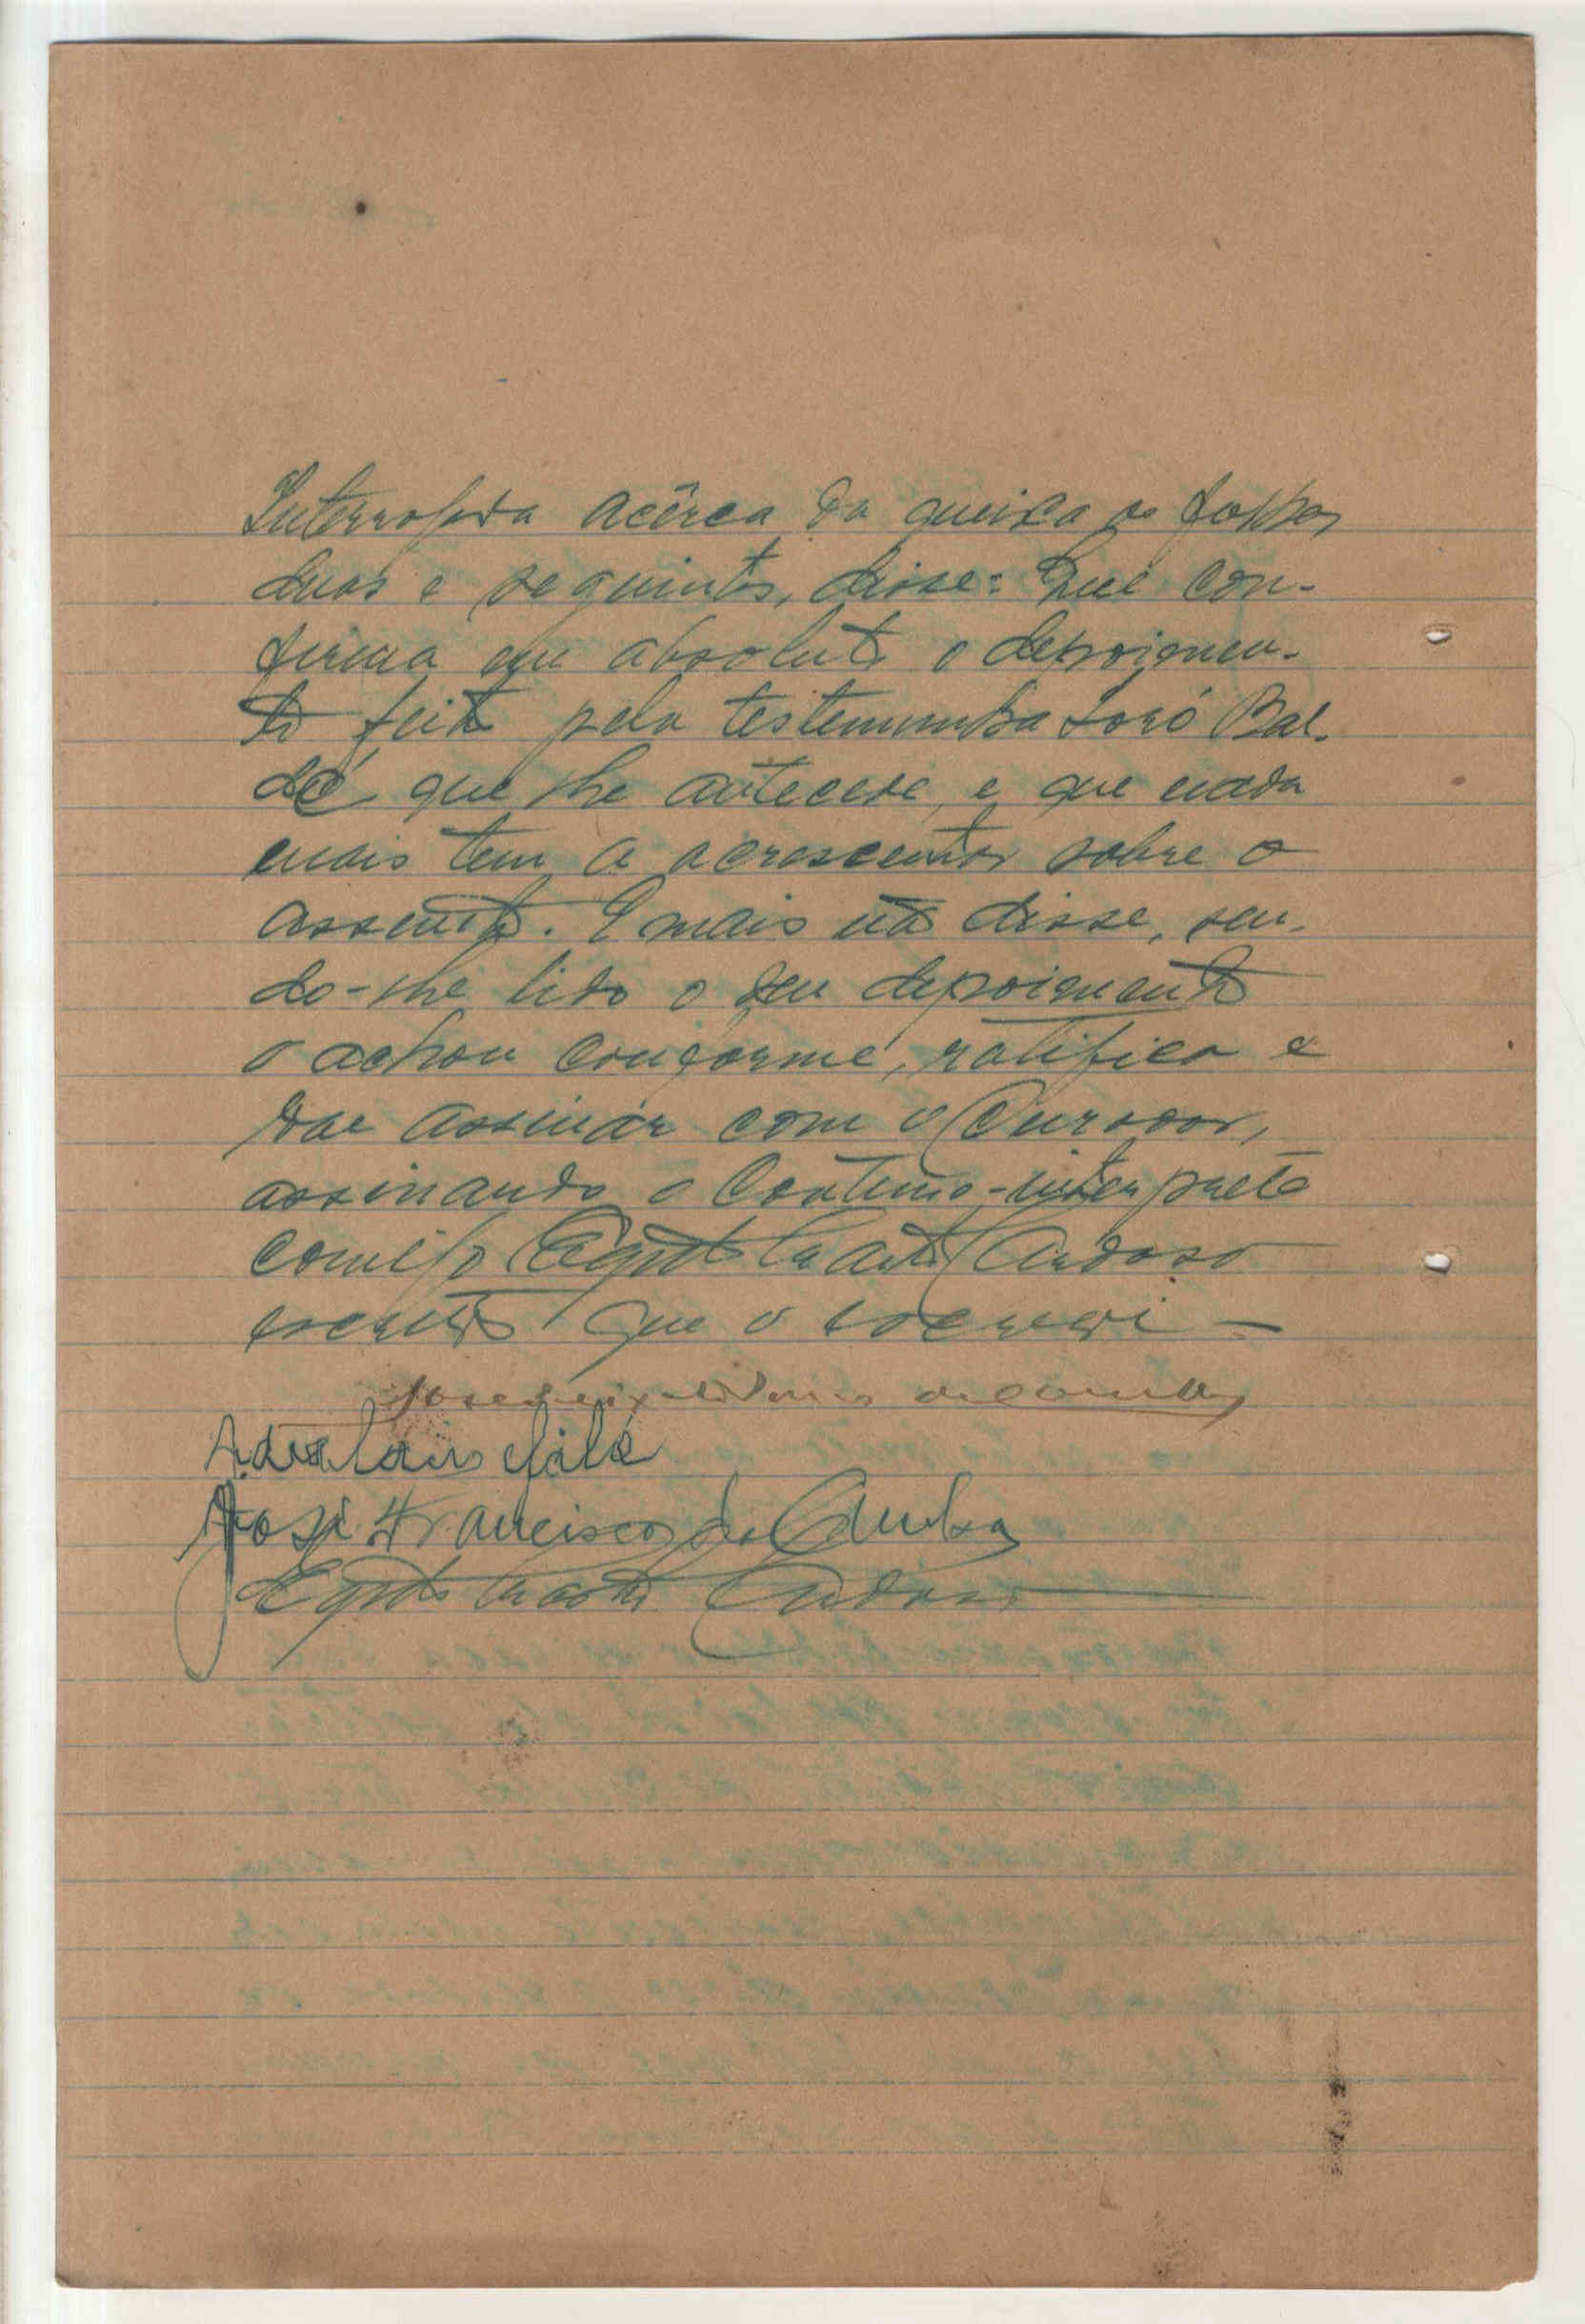 Interrogada acêrca da queixa de folhas
duas e seguintes, disse: Que con-
firma em absoluto o depoimen-
to feito pela testemunha Soró Bal-
dé que lhe antecede, e que nada
mais tem a acrescentar sobre o
assunto. E mais não disse, sen-
do-lhe lido o seu depoimento
o achou conforme, ratifica e
vae assinar com o Curador,
assinando o Contínuo-intérprete
comigo Cardoso
que o escrevi —
José
José Francisco da Cunha
Cardoso